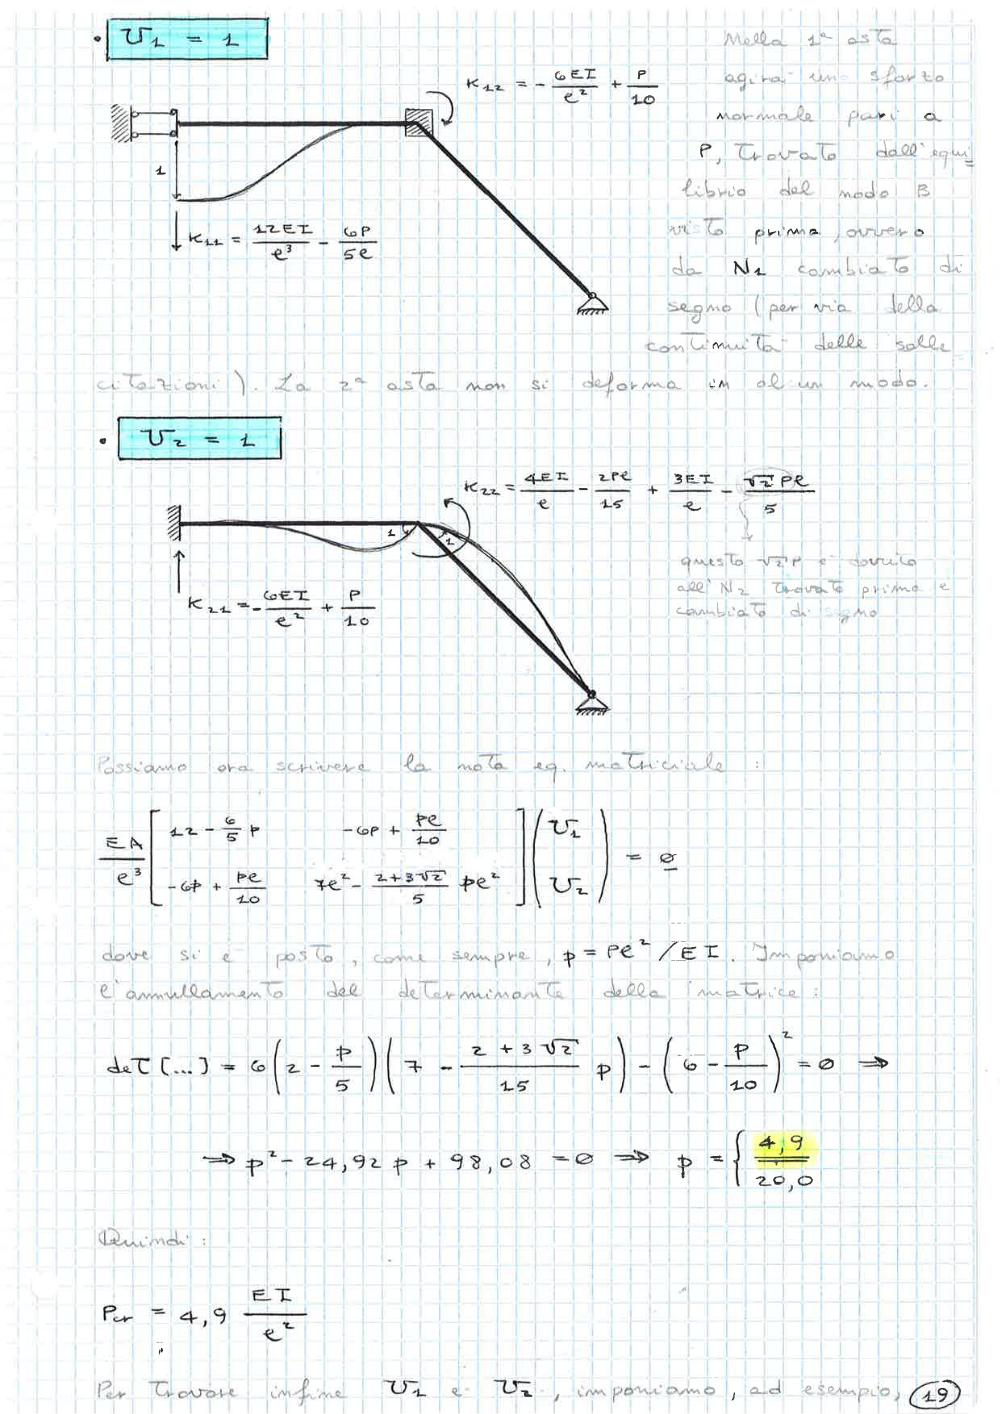 • U₁ = 1
Nella 1ª asta
agirà uno sforzo
normale pari a
P, trovato dall'equi
librio del nodo B
visto prima, ovvero
da N₁ cambiato di
segno (per via della
continuità delle solle
citazioni). La 2ª asta non si deforma in al un modo.
K₁₂ = -6EI/ℓ² + P/10
1
K₁₁ = 12EI/ℓ³ - 6P/5ℓ
• U₂ = 1
K₂₂ = 4EI/ℓ - 2Pℓ/15 + 3EI/ℓ - √2 Pℓ/5
1 1
questo √2P è dovuto
all'N₂ trovato prima e
cambiato di segno
K₂₁ = -6EI/ℓ² + P/10
Possiamo ora scrivere la nota eq. matriciale :
EA/ℓ³ [ 12 - 6/5 p   -6p + pℓ/10 ] ( U₁ )
[ -6p + pℓ/10   7ℓ² - 2+3√2/5 pℓ² ] ( U₂ ) = 0
dove si è posto, come sempre, p = Pℓ²/EI. Imponiamo
l'annullamento del determinante della matrice :
det [...] = 6 (2 - p/5)(7 - 2+3√2/15 p) - (6 - p/10)² = 0 ⇒
⇒ p² - 24,92 p + 98,08 = 0 ⇒ p = { 4,9
20,0
Quindi :
Pcr = 4,9 EI/ℓ²
Per trovare infine U₁ e U₂, imponiamo, ad esempio,
19